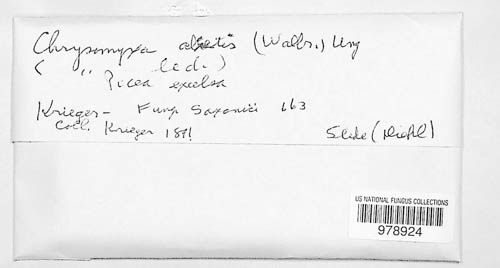 Chrysomyxa abietis (Wallr.) Ung
( " Led.)
Picea excelsa
Krieger - Fungi Saxonici 663
Coll. Krieger 1891
Slide (Diehl)
US NATIONAL FUNGUS COLLECTIONS
978924